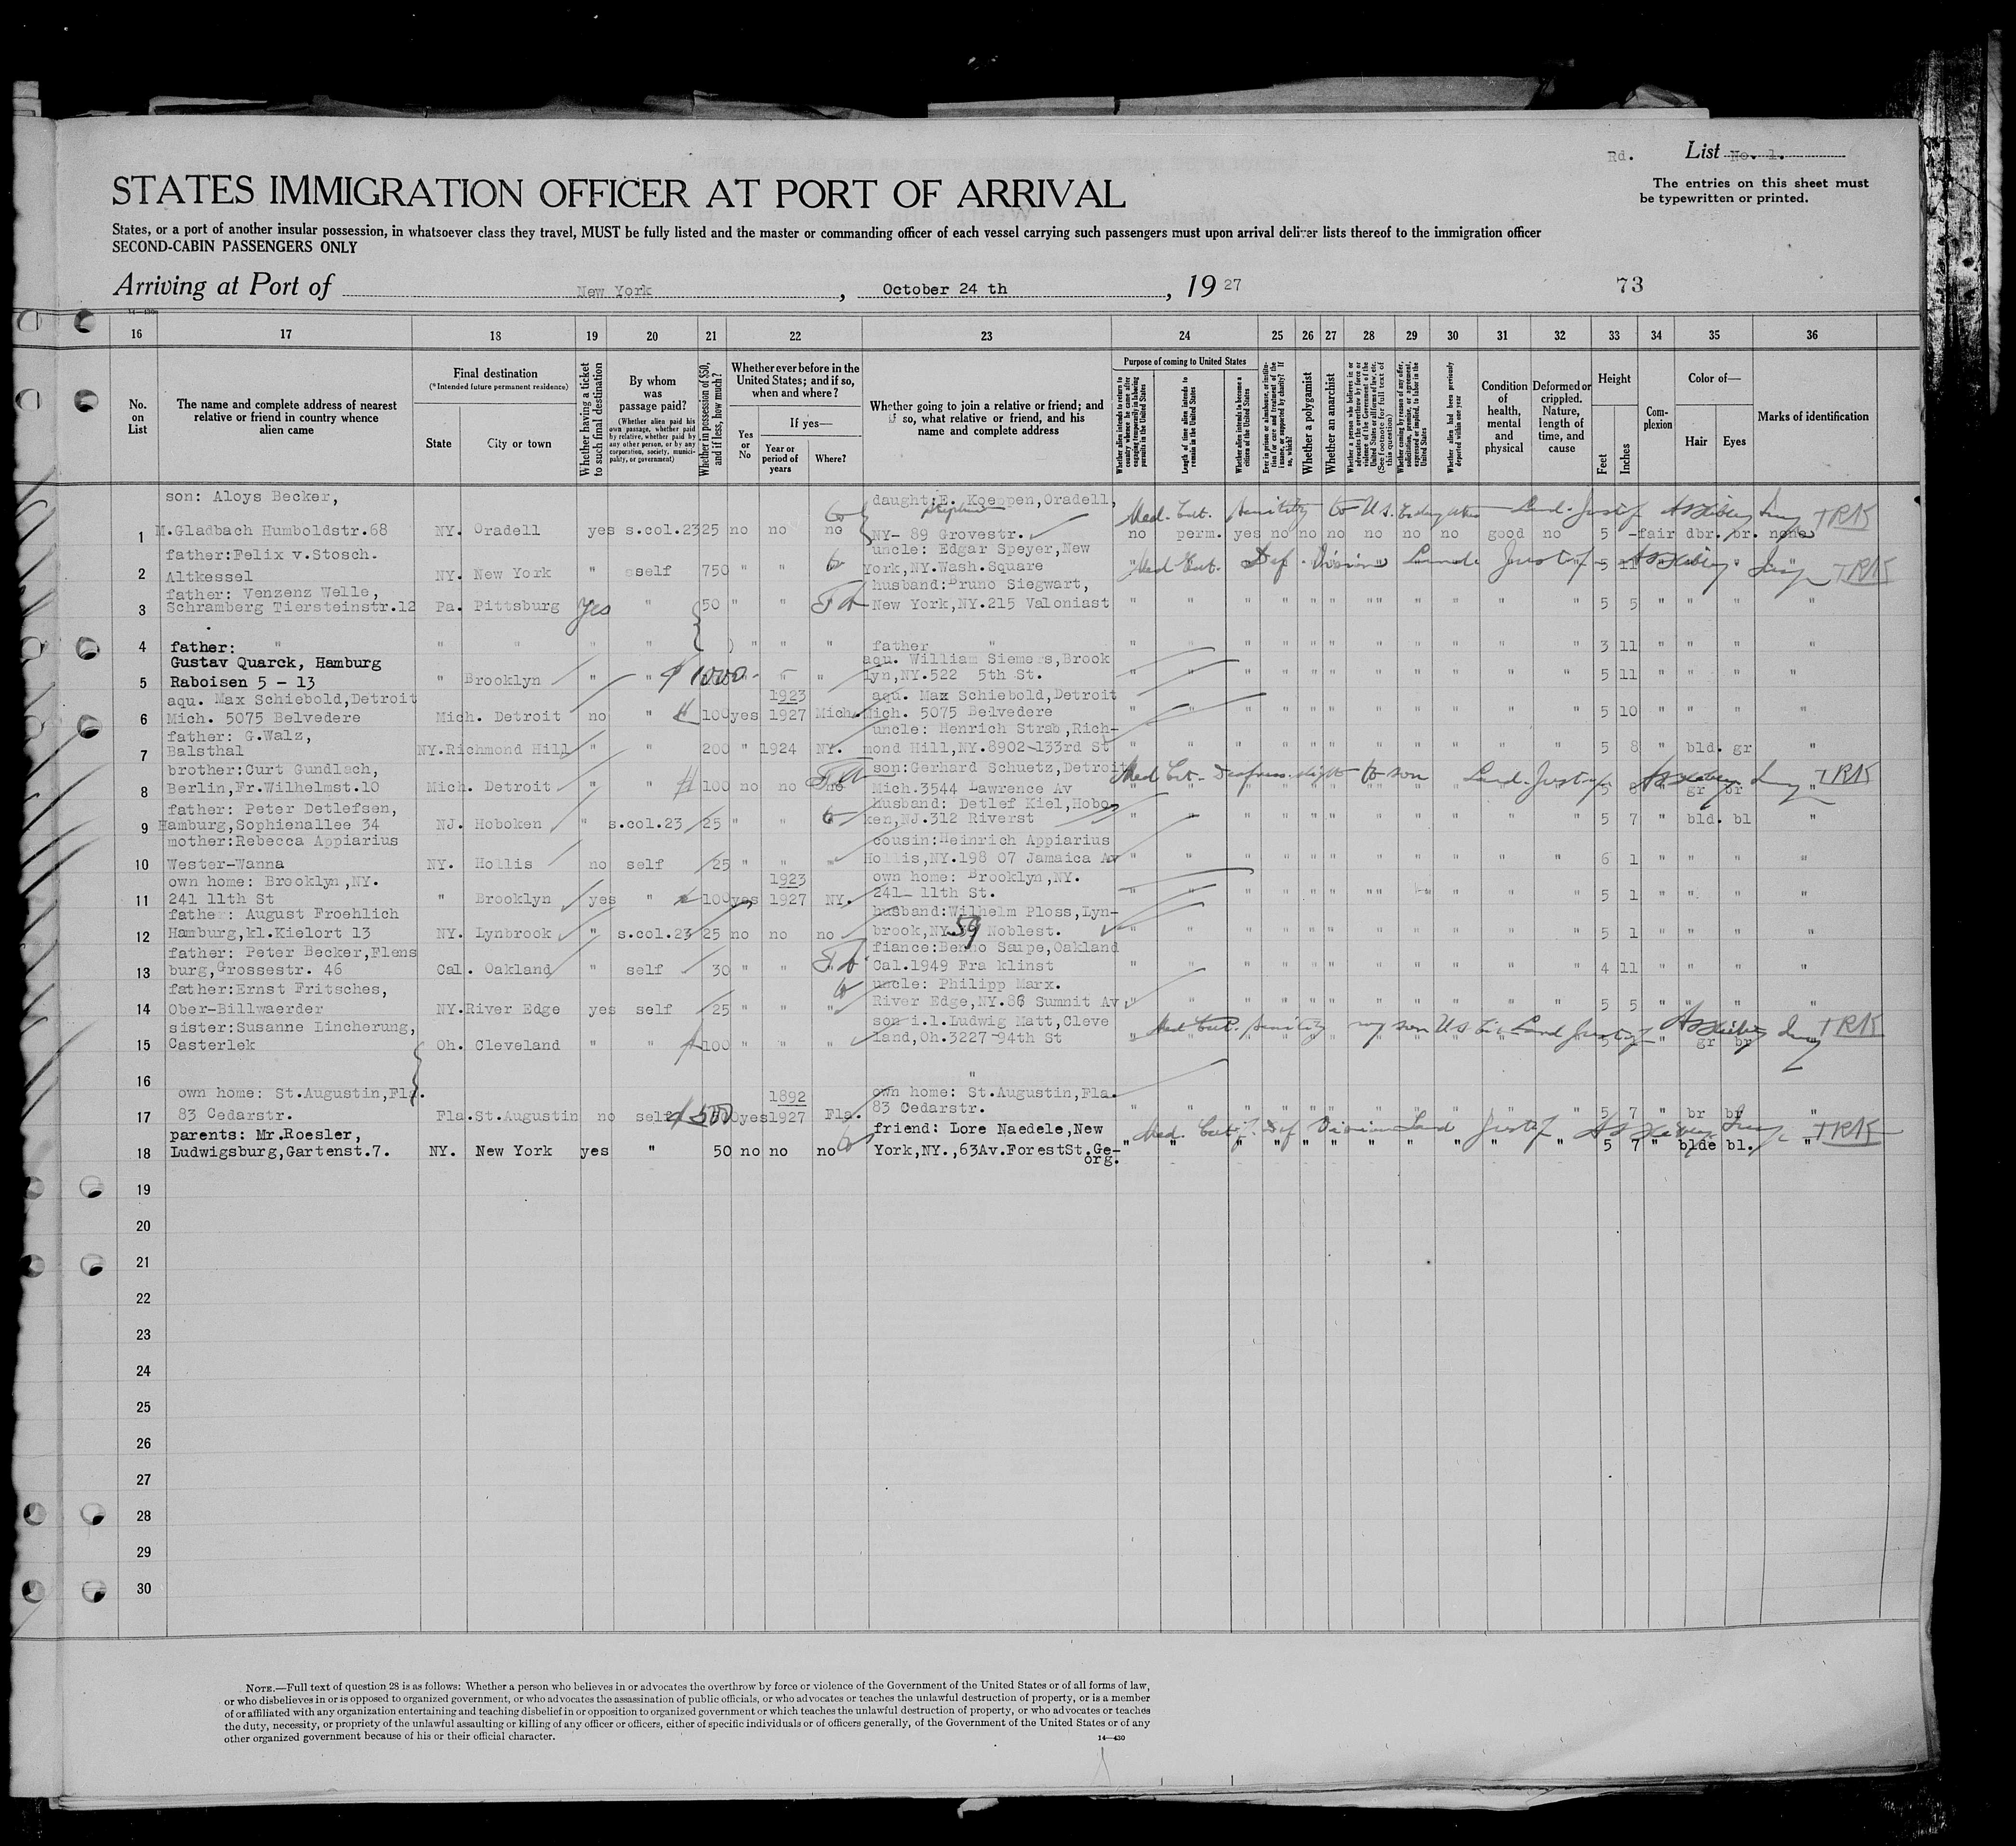 Rd. List No. 1.
The entries on this sheet must
be typewritten or printed.
STATES IMMIGRATION OFFICER AT PORT OF ARRIVAL
States, or a port of another insular possession, in whatsoever class they travel, MUST be fully listed and the master or commanding officer of each vessel carrying such passengers must upon arrival deliver lists thereof to the immigration officer
SECOND-CABIN PASSENGERS ONLY
Arriving at Port of New York, October 24 th, 19 27 73
14—430
16 17 18 19 20 21 22 23 24 25 26 27 28 29 30 31 32 33 34 35 36
No. on List
The name and complete address of nearest relative or friend in country whence alien came
Final destination
(*Intended future permanent residence)
State
City or town
Whether having a ticket to such final destination
By whom was passage paid?
(Whether alien paid his own passage, whether paid by relative, whether paid by any other person, or by any corporation, society, municipality, or government)
Whether in possession of $50, and if less, how much?
Whether ever before in the United States; and if so, when and where?
Yes or No
If yes—
Year or period of years
Where?
Whether going to join a relative or friend; and if so, what relative or friend, and his name and complete address
Purpose of coming to United States
Whether alien intends to return to country whence he came after engaging temporarily in laboring pursuits in the United States
Length of time alien intends to remain in the United States
Whether alien intends to become a citizen of the United States
Ever in prison or almshouse, or institution for care and treatment of the insane, or supported by charity? If so, which?
Whether a polygamist
Whether an anarchist
Whether a person who believes in or advocates the overthrow by force or violence of the Government of the United States or all forms of law, etc. (See footnote for full text of this question)
Whether coming by reason of any offer, solicitation, promise, or agreement, expressed or implied, to labor in the United States
Whether alien had been previously deported within one year
Condition of health, mental and physical
Deformed or crippled. Nature, length of time, and cause
Height
Feet
Inches
Complexion
Color of—
Hair
Eyes
Marks of identification
son: Aloys Becker, daught:E. Koeppen,Oradell,
1 M.Gladbach Humboldstr.68 NY. Oradell yes s.col.23 25 no no no NY- 89 Grovestr. no perm. yes no no no no no no good no 5 - fair dbr. br. none
Med. Cert. Senility Land. Justif TRK
father:Felix v.Stosch. uncle: Edgar Speyer,New
2 Altkessel NY. New York " self 750 " " York,NY.Wash.Square 5 11
Med Cert. Def. Vision Land. Justif TRK
father: Venzenz Welle, husband:Bruno Siegwart,
3 Schramberg Tiersteinstr.12 Pa. Pittsburg yes " 50 " " New York,NY.215 Valoniast " " " " " " " " " " " " 5 5 " " " "
4 father: " " " " " " " " father " " " " " " " " " " " " 3 11 " " " "
Gustav Quarck, Hamburg aqu. William Siemers,Brook
5 Raboisen 5 - 13 " Brooklyn " " $1000 " " lyn,NY.522 5th St. " " " " " " " " " " " 5 11 " " " "
aqu. Max Schiebold,Detroit 1923 aqu. Max Schiebold,Detroit
6 Mich. 5075 Belvedere Mich. Detroit no " 100 yes 1927 Mich. Mich. 5075 Belvedere " " " " " " " " " " " 5 10 " " " "
father: G.Walz, uncle: Henrich Strab,Rich-
7 Balsthal NY.Richmond Hill " " 200 " 1924 NY. mond Hill,NY.8902-133rd St " " " " " " " " " " " 5 8 " bld. gr
brother:Curt Gundlach, son:Gerhard Schuetz,Detroit
8 Berlin,Fr.Wilhelmst.10 Mich. Detroit " " 100 no no no Mich.3544 Lawrence Av 5 gr br "
Med Cert. son Land. Justif TRK
father: Peter Detlefsen, husband: Detlef Kiel,Hobo-
9 Hamburg,Sophienallee 34 NJ. Hoboken " s.col.23 25 " " ken,NJ.312 Riverst " " " " " " " " " " " 5 7 " bld. bl "
mother:Rebecca Appiarius cousin:Heinrich Appiarius
10 Wester-Wanna NY. Hollis no self 25 " " " Hollis,NY.198 07 Jamaica Av " " " " " " " " " " " 6 1 " " " "
own home: Brooklyn,NY. 1923 own home: Brooklyn,NY.
11 241 11th St " Brooklyn yes " 100 yes 1927 NY. 241- 11th St. " " " " " " " " " " " 5 1 " " " "
father: August Froehlich husband:Wilhelm Ploss,Lyn-
12 Hamburg,kl.Kielort 13 NY. Lynbrook " s.col.23 25 no no no brook,NY. 59 Noblest. " " " " " " " " " " " 5 1 " " " "
father: Peter Becker,Flens fiance:Benno Saupe,Oakland
13 burg,Grossestr. 46 Cal. Oakland " self 30 " " " Cal.1949 Fra klinst " " " " " " " " " " " 4 11 " " " "
father:Ernst Fritsches, uncle: Philipp Marx.
14 Ober-Billwaerder NY.River Edge yes self 25 " " " River Edge,NY.86 Sumnit Av. " " " " " " " " " " " 5 5 " " " "
sister:Susanne Lincherung, son i.l.Ludwig Matt,Cleve
15 Casterlek Oh. Cleveland " " 100 " " " land,Oh.3227-94th St 5 gr br
Med Cert. Senility Land Justif TRK
16 "
own home: St.Augustin,Fla. 1892 own home: St.Augustin,Fla.
17 83 Cedarstr. Fla.St.Augustin no self $500 yes 1927 Fla. 83 Cedarstr. " " " " " " " " " " " 5 7 " br br "
parents: Mr.Roesler, friend: Lore Naedele,New
Med. Certif. Def Vision Land Justif TRK
18 Ludwigsburg,Gartenst.7. NY. New York yes " 50 no no no York,NY.,63Av.ForestSt.Ge- " " " " " " " " " " " 5 7 " blde bl. "
org.
19
20
21
22
23
24
25
26
27
28
29
30
NOTE.—Full text of question 28 is as follows: Whether a person who believes in or advocates the overthrow by force or violence of the Government of the United States or of all forms of law,
or who disbelieves in or is opposed to organized government, or who advocates the assassination of public officials, or who advocates or teaches the unlawful destruction of property, or is a member
of or affiliated with any organization entertaining and teaching disbelief in or opposition to organized government or which teaches the unlawful destruction of property, or who advocates or teaches
the duty, necessity, or propriety of the unlawful assaulting or killing of any officer or officers, either of specific individuals or of officers generally, of the Government of the United States or of any
other organized government because of his or their official character.
14—430